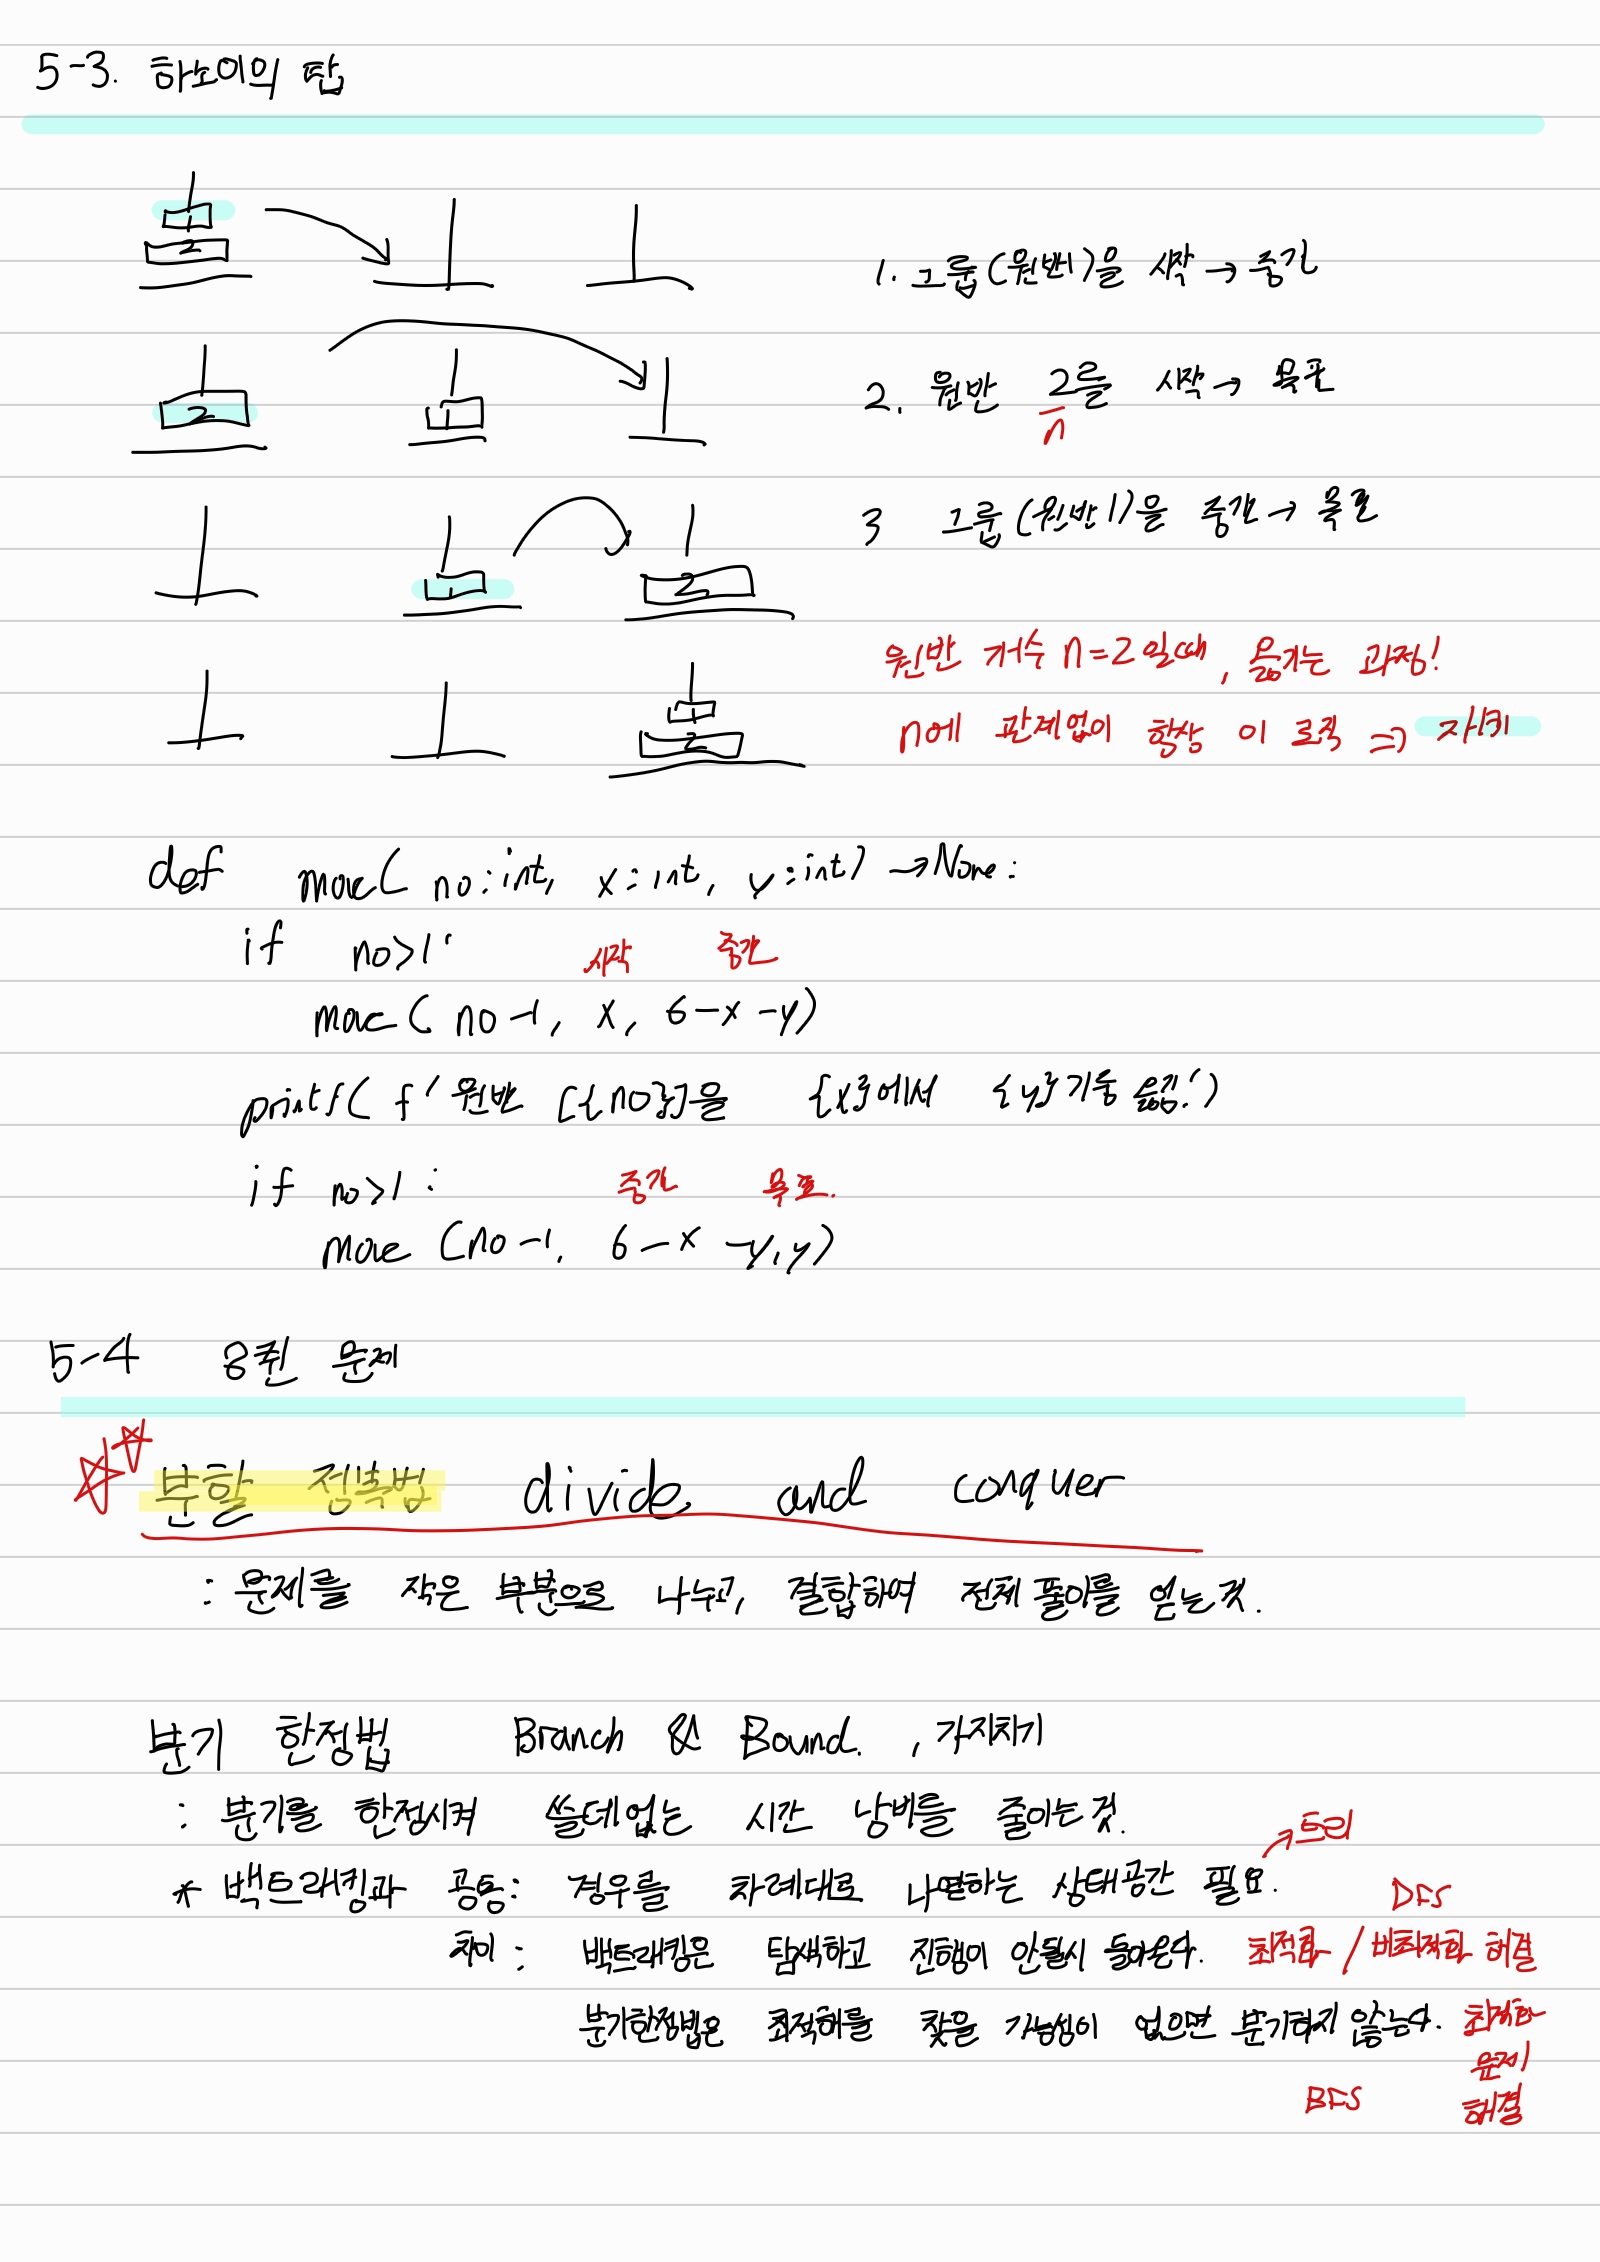 5-3. 하노이의 탑
1
2
1. 그룹(원반1)을 시작 → 중간
2
1
2. 원반 2를 시작 → 목표
n
1
2
3 그룹(원반1)을 중간 → 목표
원반 개수 n=2일때, 옮기는 과정!
1
2
n에 관계없이 항상 이 로직 ⇒
def move( no:int, x:int, y:int) → None:
if no>1:
시작 중간
move( no-1, x, 6-x-y)
print( f'원반 [{no}]을 {x}에서 {y}기둥 옮김!')
if no>1 :
중간 목표.
move (no-1, 6-x-y, y)
5-4 8퀸 문제
분할 정복법 divide and conquer
: 문제를 작은 부분으로 나누고, 결합하여 전체 풀이를 얻는것.
분기 한정법 Branch & Bound. , 가지치기
: 분기를 한정시켜 쓸데없는 시간 낭비를 줄이는것.
→ 트리
* 백트래킹과 공통: 경우를 차례대로 나열하는 상태공간 필요.
DFS
차이 : 백트래킹은 탐색하고 진행이 안될시 돌아온다. 최적화 / 비최적화 해결
분기한정법은 최적해를 찾을 가능성이 없으면 분기하지 않는다. 최적화
문제
BFS 해결